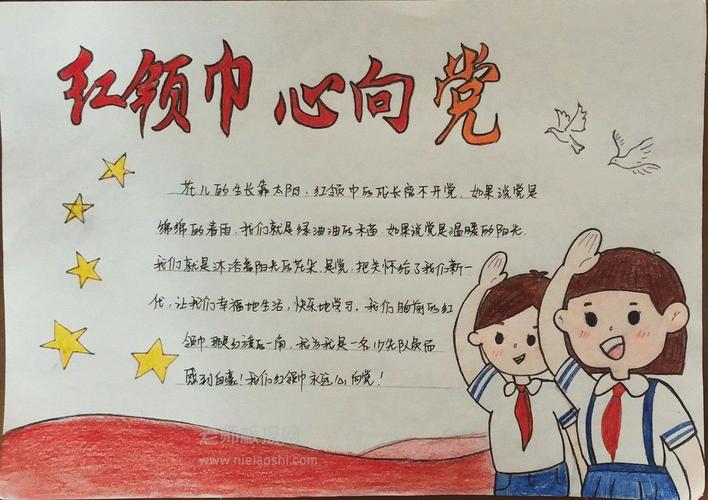 红领巾 心向党
花儿的生长靠太阳，红领巾的成长离不开党，如果说党是
绵绵的春雨，我们就是绿油油的禾苗，如果说党是温暖的阳光，
我们就是沐浴着阳光的花朵，是党，把关怀给了我们新一
代，让我们幸福地生活，快乐地学习，我们胸前的红
领巾，那是红旗的一角，我为我是一名少先队员而
感到自豪！我们红领巾永远心向党！
老师板报网
www.nielaoshi.com